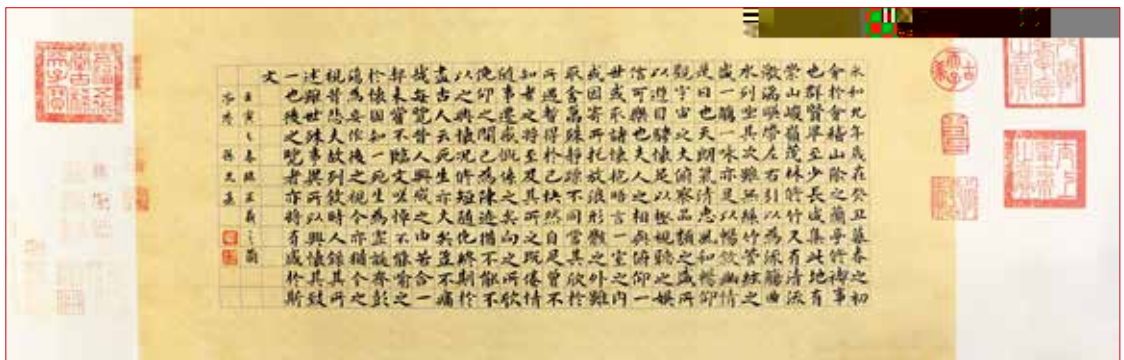 永和九年歲在癸丑暮春之初
會於會稽山陰之蘭亭修禊事
也群賢畢至少長咸集此地有
崇山峻嶺茂林修竹又有清流
激湍暎帶左右引以為流觴曲
水列坐其次雖無絲竹管絃之
盛一觴一詠亦足以暢敘幽情
是日也天朗氣清惠風和暢仰
觀宇宙之大俯察品類之盛所
以遊目騁懷足以極視聽之娛
信可樂也夫人之相與俯仰一
世或取諸懷抱晤言一室之內
或因寄所托放浪形骸之外雖
取舍萬殊靜躁不同當其欣於
所遇暫得於己快然自足曾不
知老之將至及其所之既倦情
隨事遷感慨係之矣向之所欣
俛仰之間已為陳迹猶不能不
以之興懷況修短隨化終期於
盡古人云死生亦大矣豈不痛
哉每覽昔人興感之由若合一
契未嘗不臨文嗟悼不能喻之
於懷固知一死生為虛誕齊彭
殤為妄作後之視今亦猶今之
視昔悲夫故列敘時人錄其所
述雖世殊事異所以興懷其致
一也後之覽者亦將有感於斯
文